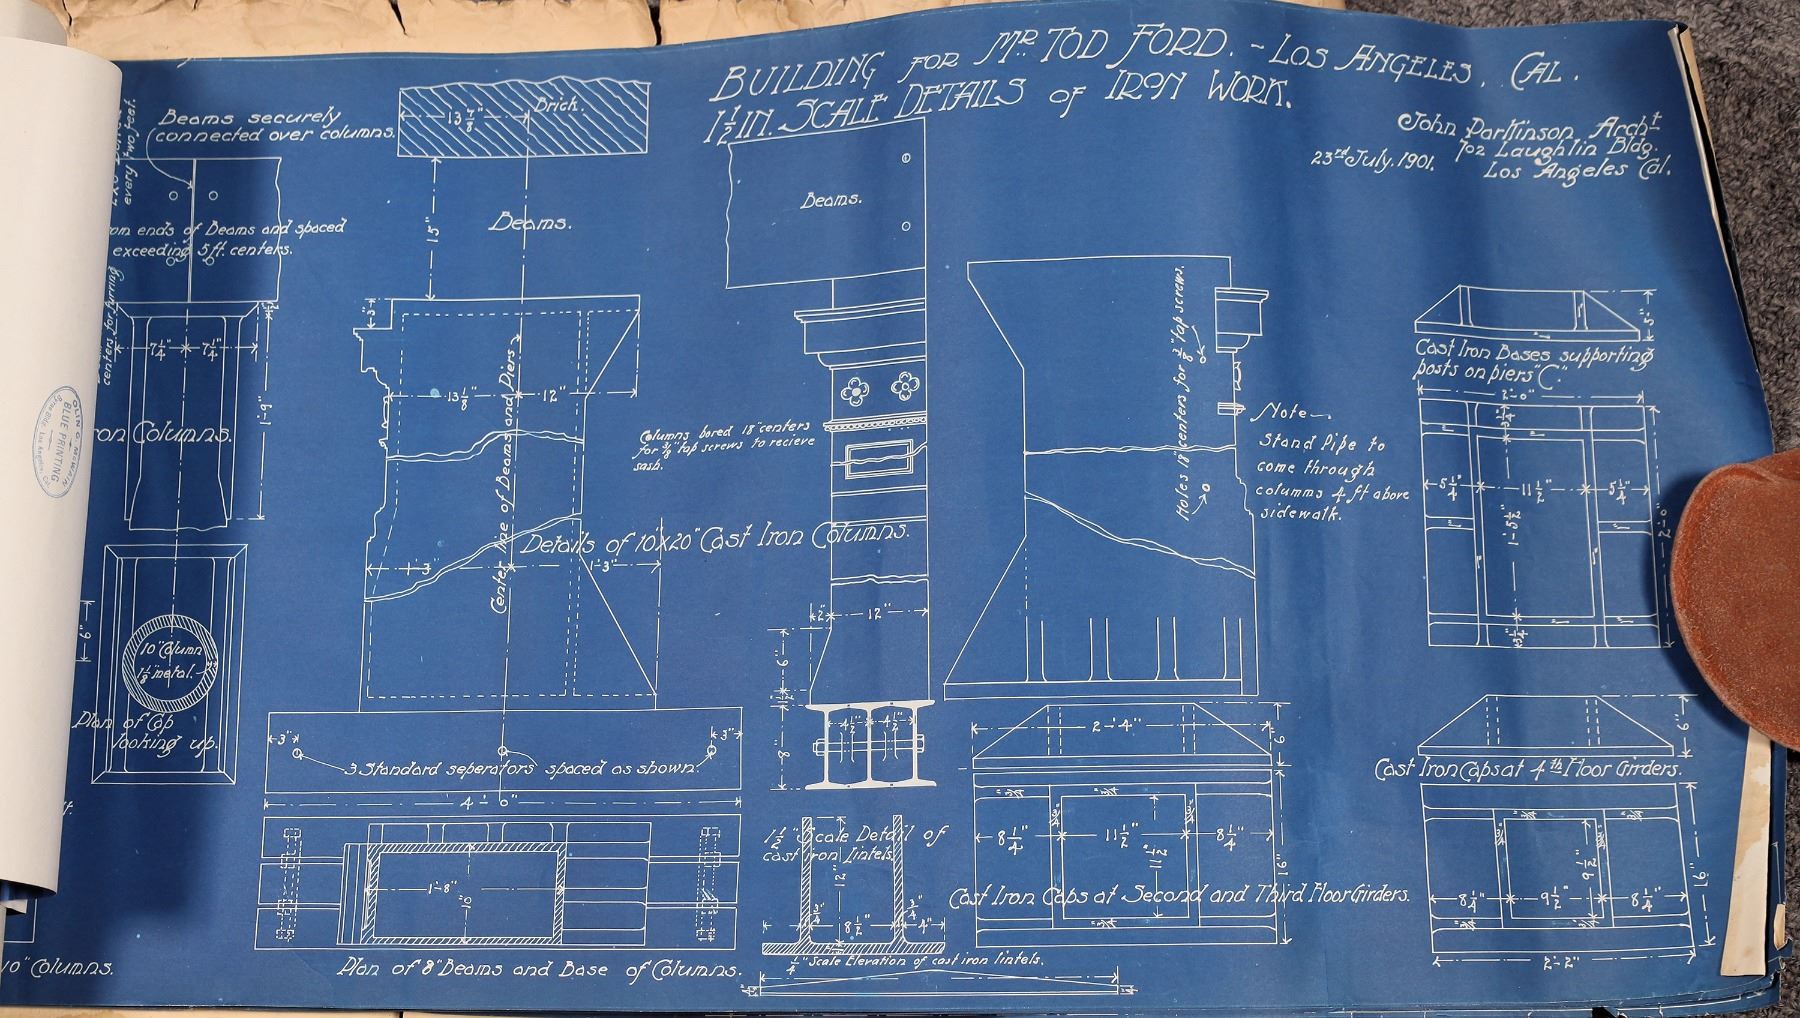 BUILDING FOR MR. TOD FORD. - LOS ANGELES, CAL.
1 1/2 IN. SCALE DETAILS OF IRON WORK.
John Parkinson, Archt
702 Laughlin Bldg.
Los Angeles Cal.
23rd July, 1901.
Beams securely
connected over columns.
every two feet.
om ends of Beams and spaced
exceeding 5 ft. centers.
centers for furring
1 1/2"
7 1/4" 7 1/4"
1'-9"
on Columns.
OLIN C. McWAIN
BLUE PRINTING
6"
10" Column
1 1/8" metal.
Plan of Cap
looking up.
10" Columns.
Brick.
13 7/8"
15"
Beams.
3"
13 7/8" 12"
Center line of Beams and Piers
1'-3" 1'-3"
3" 3"
3 Standard seperators spaced as shown.
4'-0"
1'-8"
10"
Plan of 8" Beams and Base of Columns.
Beams.
Columns bored 18" centers
for 3/8" tap screws to recieve
sash.
Details of 10"x20" Cast Iron Columns.
2" 12"
6"
1 1/2"
8"
4 1/2" 4 1/2"
1 1/2" Scale Detail of
cast iron lintels.
12"
3/4" 3/4"
8 1/2" 4"
1/4" Scale Elevation of cast iron lintels.
4" 4"
Holes 18" centers for 3/8" tap screws.
Note-.
Stand Pipe to
come through
columns 4 ft above
sidewalk.
2'-4"
6"
3/4" 3/4"
8 1/4" 11 1/2" 8 1/4"
11 1/2"
16"
Cast Iron Caps at Second and Third Floor Girders.
5"
Cast Iron Bases supporting
posts on piers "C".
2'-0"
5 1/4" 11 1/2" 5 1/4"
1'-5 1/2"
2'-0"
6"
Cast Iron Caps at 4th Floor Girders.
8 1/4" 9 1/2" 8 1/4"
9 1/2"
16"
2'-2"